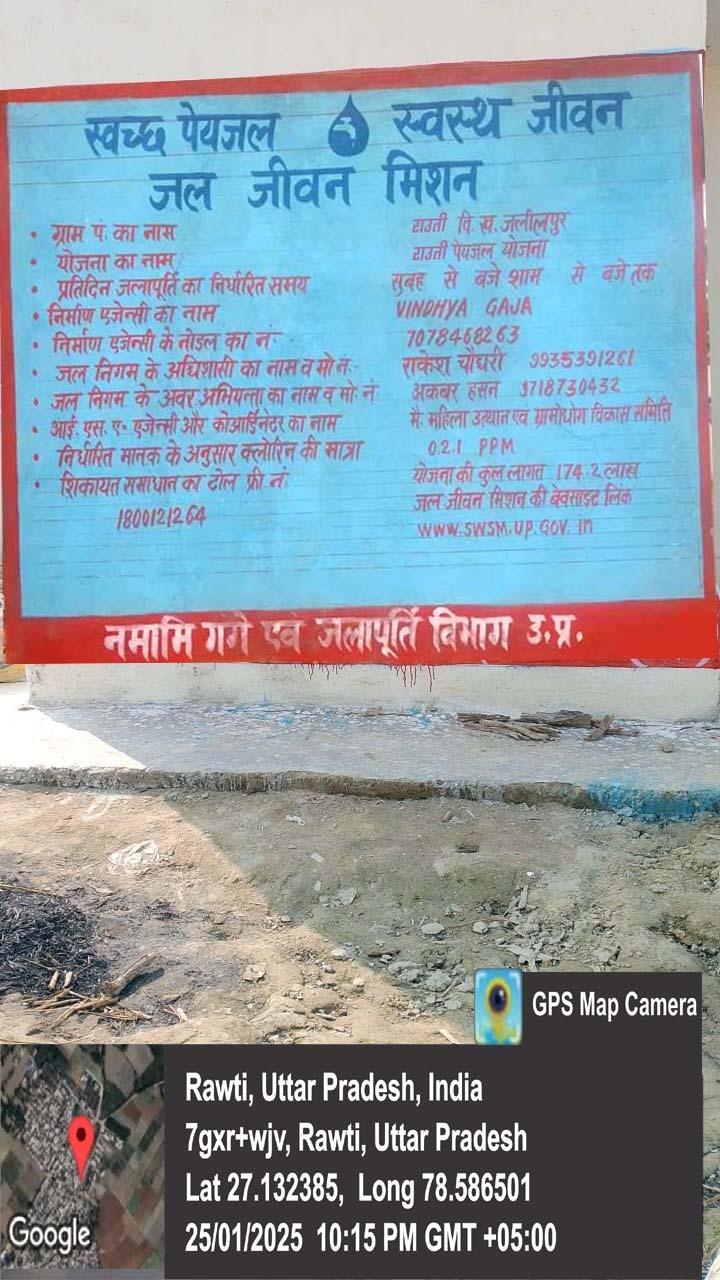 स्वच्छ पेयजल स्वस्थ जीवन
जल जीवन मिशन
• ग्राम पं. का नाम टाउती वि. ख. जलीलपुर
• योजना का नाम टाउती पेयजल योजना
• प्रतिदिन जलापूर्ति का निर्धारित समय सुबह से बजे शाम से बजे तक
• निर्माण एजेन्सी का नाम VINDHYA GAJA
• निर्माण एजेन्सी के नोडल का नं:- 7078468263
• जल निगम के अधिशासी का नाम व मो नं:- राकेश चौधरी 9935391261
• जल निगम के अवर अभियन्ता का नाम व मो: नं अकबर हसन 9718730432
• आई. एस. ए- एजेन्सी और कोआर्डिनेटर का नाम मै. महिला उत्थान एवं ग्रामोधोग विकास समिति
• निर्धारित मानक के अनुसार क्लोरिन की मात्रा 0.2.1 PPM
• शिकायत समाधान का टोल फ्री नं: योजना की कुल लागत 174.2 लाख
1800121264 जल जीवन मिशन की बेवसाइट लिंक
www.SWSM.UP.GOV.in
नमामि गंगे एवं जलापूर्ति विभाग उ.प्र.
GPS Map Camera
Rawti, Uttar Pradesh, India
7gxr+wjv, Rawti, Uttar Pradesh
Lat 27.132385, Long 78.586501
25/01/2025 10:15 PM GMT +05:00
Google